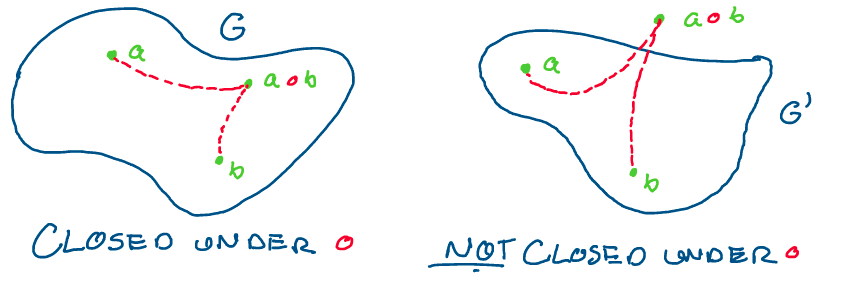 G
a
a o b
b
CLOSED UNDER o
a o b
a
G'
b
NOT CLOSED UNDER o